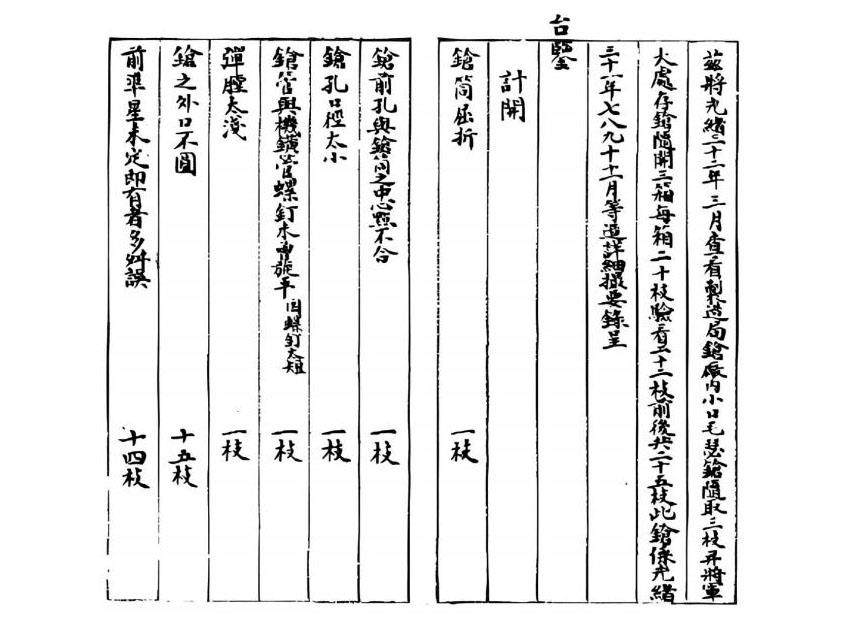 茲將光緒三十二年三月查看製造局鎗廠內小口毛瑟鎗隨取三枝并將軍
大處存鎗隨開三箱每箱二十枝驗看二十二枝前後共二十五枝此鎗係光緒
三十一年七八九十十一月等造詳細撮要錄呈
台鑒
計開
鎗筒屈折 一枝
鎗前孔與鎗筒之中心點不合 一枝
鎗孔口徑太小 一枝
鎗管與機鐄管螺釘未曾旋平因螺釘太短 一枝
彈膛太淺 一枝
鎗之外口不圓 十五枝
前準星未定即有者多舛誤 十四枝